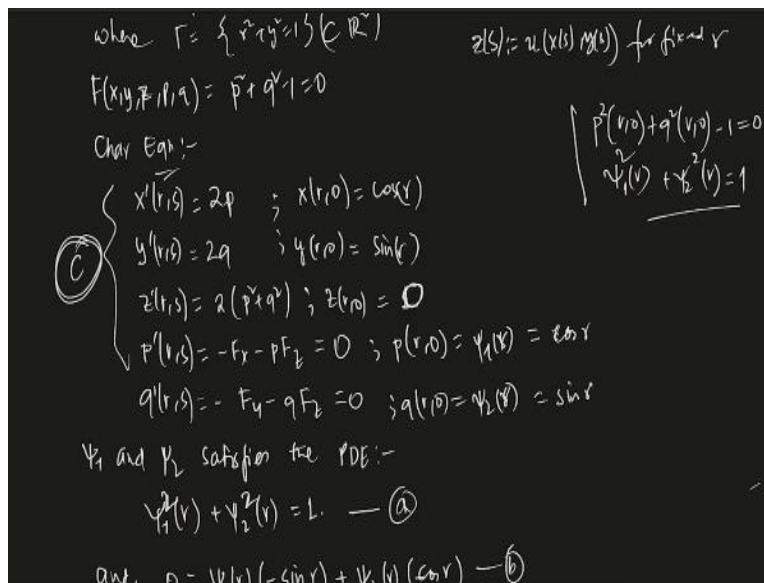 where Γ = { x²+y²=1 } (⊂ ℝ²)
z(s) := u(x(s) y(s)) for fixed r
F(x,y,z,p,q) = p²+q²-1=0
p²(r,0)+q²(r,0)-1=0
ψ₁²(r) + ψ₂²(r) = 1
Char Eqn:-
C
x'(r,s) = 2p ; x(r,0) = cos(r)
y'(r,s) = 2q ; y(r,0) = sin(r)
z'(r,s) = 2(p²+q²) ; z(r,0) = 0
p'(r,s) = -Fx - pFz = 0 ; p(r,0) = ψ₁(r) = cos r
q'(r,s) = - Fy - qFz = 0 ; q(r,0) = ψ₂(r) = sin r
ψ₁ and ψ₂ satisfies the PDE:-
ψ₁²(r) + ψ₂²(r) = 1. — ⓐ
and, 0 = ψ₁(r) (-sin r) + ψ₂(r) (cos r) — ⓑ